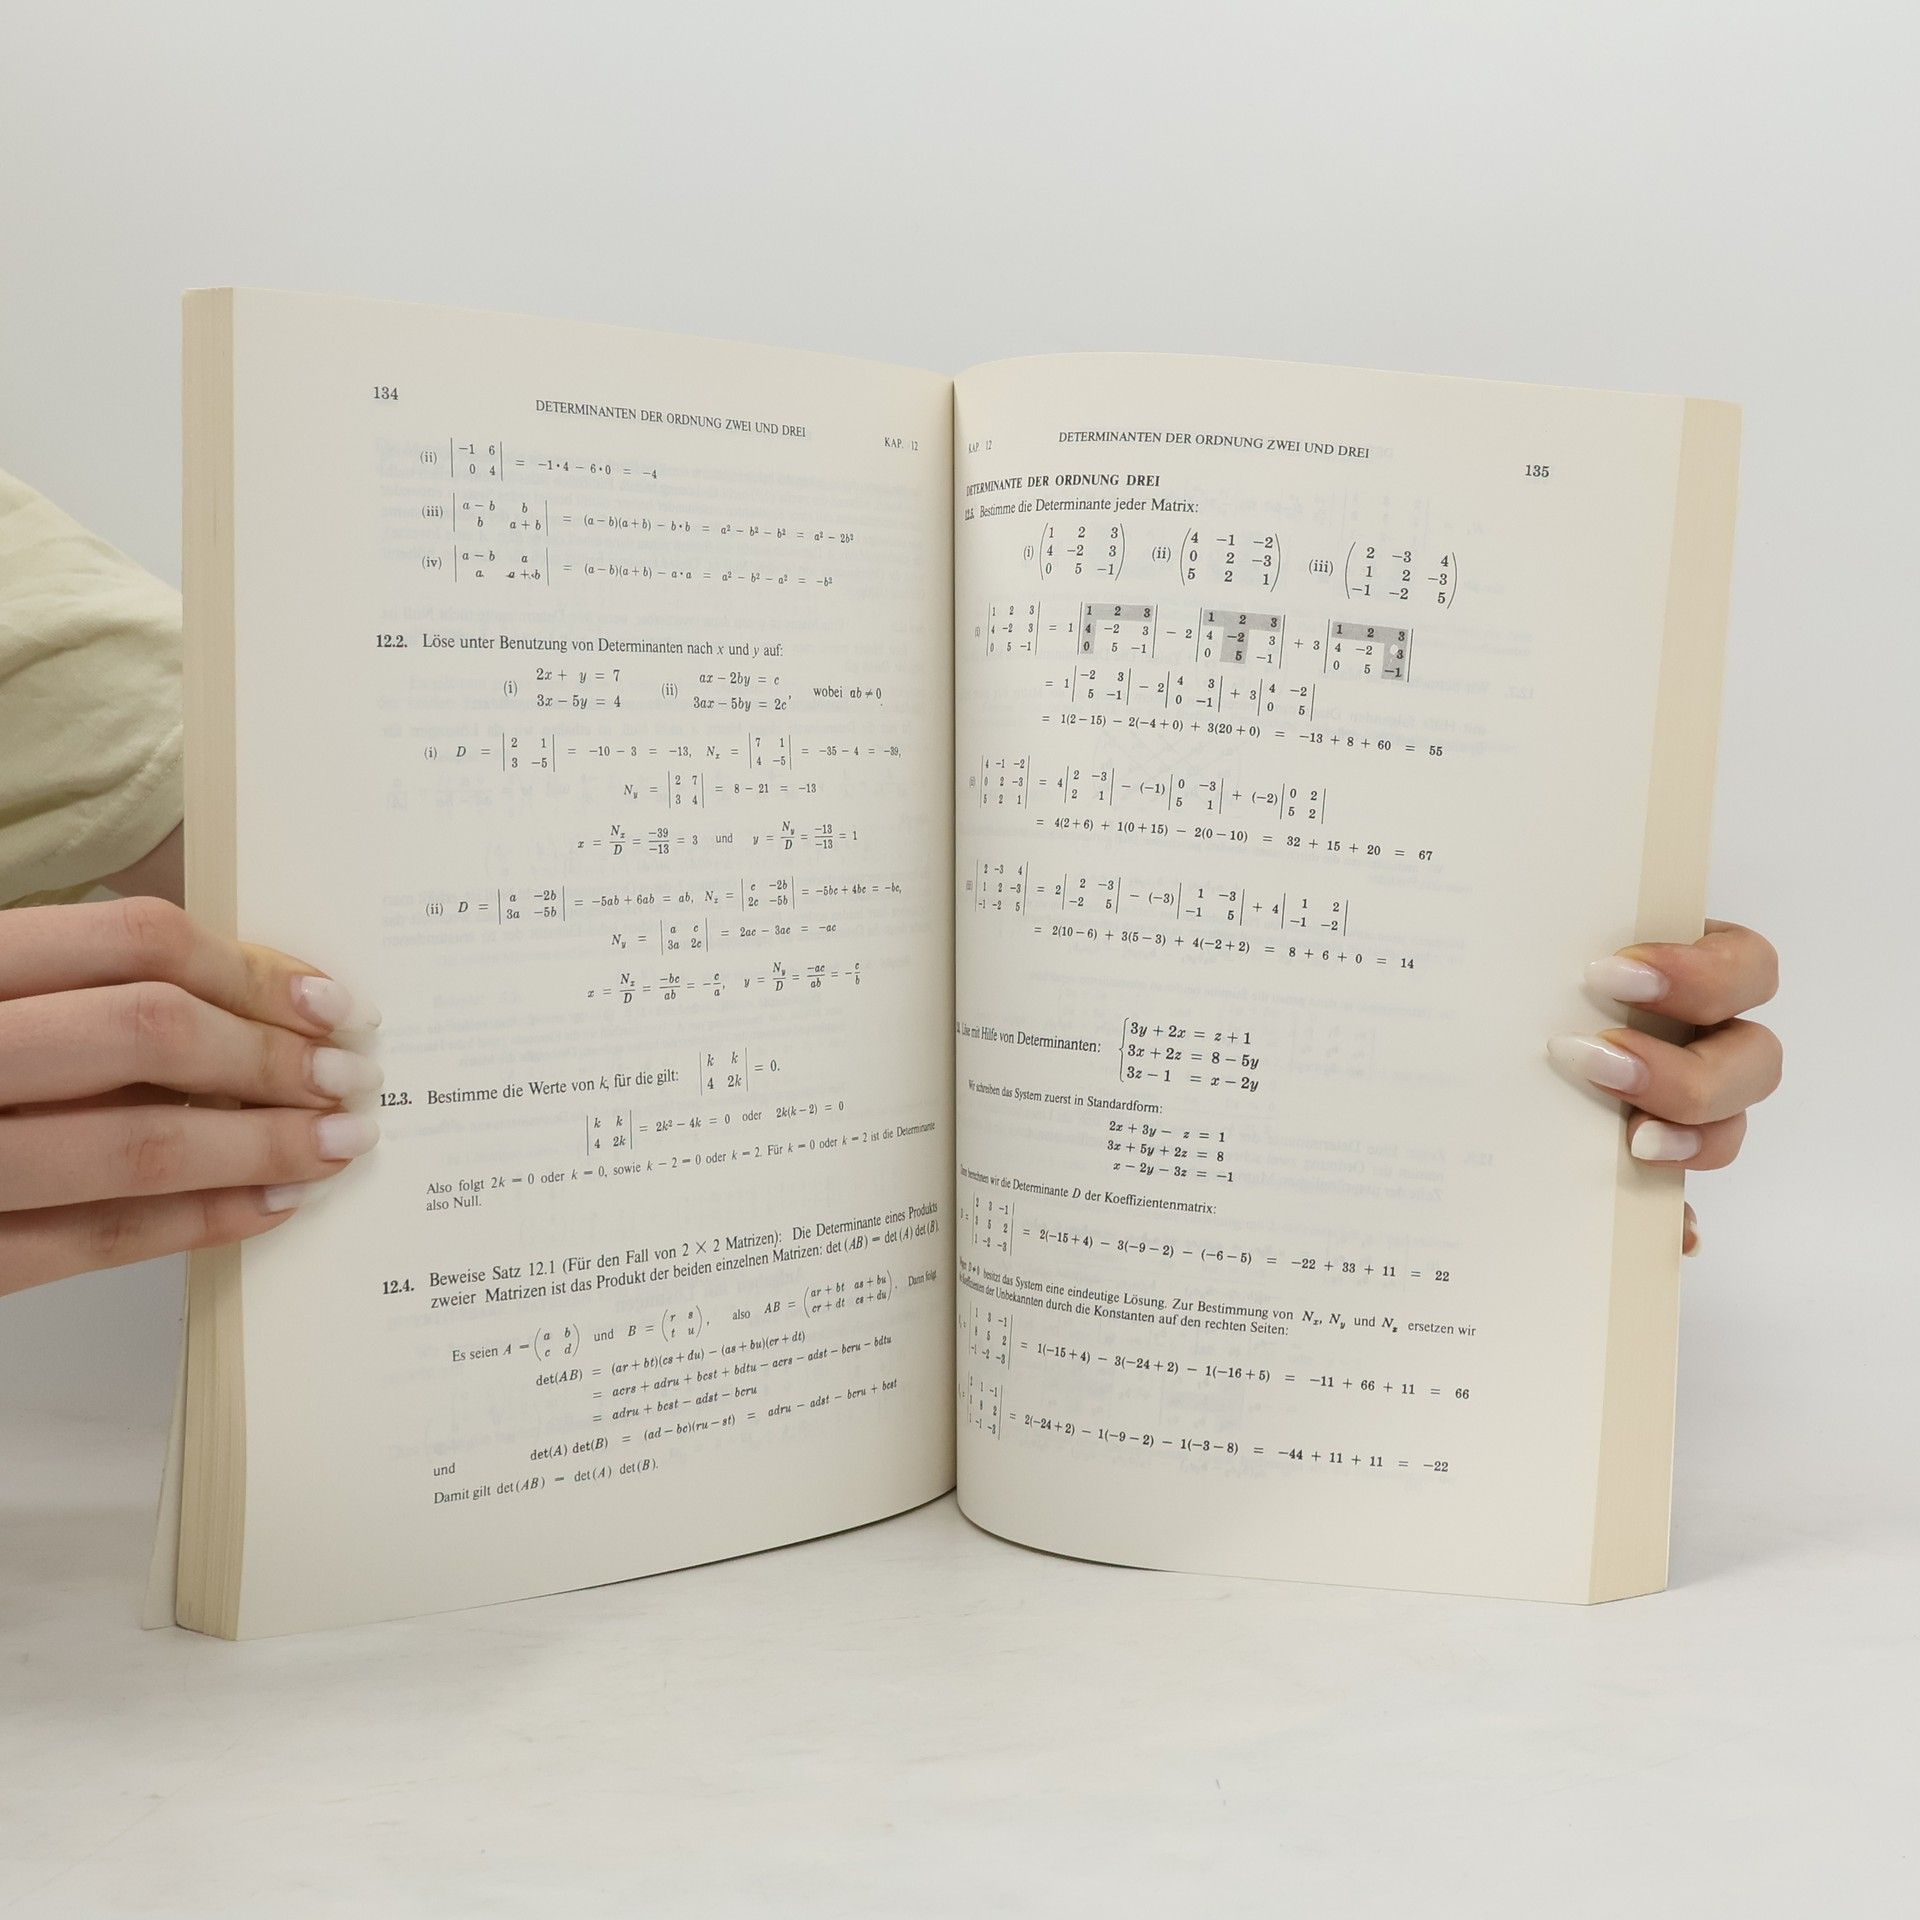 134
DETERMINANTEN DER ORDNUNG ZWEI UND DREI
KAP. 12
(ii) |−1 6; 0 4| = −1•4 − 6•0 = −4
(iii) |a − b b; b a + b| = (a − b)(a + b) − b•b = a² − b² − b² = a² − 2b²
(iv) |a − b a; a a + b| = (a − b)(a + b) − a•a = a² − b² − a² = −b²
12.2. Löse unter Benutzung von Determinanten nach x und y auf:
(i) 2x + y = 7 (ii) ax − 2by = c, wobei ab ≠ 0
3x − 5y = 4 3ax − 5by = 2c
(i) D = |2 1; 3 −5| = −10 − 3 = −13, Nx = |7 1; 4 −5| = −35 − 4 = −39,
Ny = |2 7; 3 4| = 8 − 21 = −13
x = Nx/D = −39/−13 = 3 und y = Ny/D = −13/−13 = 1
(ii) D = |a −2b; 3a −5b| = −5ab + 6ab = ab, Nx = |c −2b; 2c −5b| = −5bc + 4bc = −bc,
Ny = |a c; 3a 2c| = 2ac − 3ac = −ac
x = Nx/D = −bc/ab = −c/a, y = Ny/D = −ac/ab = −c/b
12.3. Bestimme die Werte von k, für die gilt: |k k; 4 2k| = 0.
|k k; 4 2k| = 2k² − 4k = 0 oder 2k(k − 2) = 0
Also folgt 2k = 0 oder k = 0, sowie k − 2 = 0 oder k = 2. Für k = 0 oder k = 2 ist die Determinante
also Null.
12.4. Beweise Satz 12.1 (Für den Fall von 2 × 2 Matrizen): Die Determinante eines Produkts
zweier Matrizen ist das Produkt der beiden einzelnen Matrizen: det (AB) = det (A) det (B).
Es seien A = (a b; c d) und B = (r s; t u), also AB = (ar + bt as + bu; cr + dt cs + du). Dann folgt
det(AB) = (ar + bt)(cs + du) − (as + bu)(cr + dt)
= acrs + adru + bcst + bdtu − acrs − adst − bcru − bdtu
= adru + bcst − adst − bcru
und det(A) det(B) = (ad − bc)(ru − st) = adru − adst − bcru + bcst
Damit gilt det (AB) = det(A) det(B).
KAP. 12
DETERMINANTEN DER ORDNUNG ZWEI UND DREI
135
DETERMINANTE DER ORDNUNG DREI
12.5. Bestimme die Determinante jeder Matrix:
(i) (1 2 3; 4 −2 3; 0 5 −1) (ii) (4 −1 −2; 0 2 −3; 5 2 1) (iii) (2 −3 4; 1 2 −3; −1 −2 5)
(i) |1 2 3; 4 −2 3; 0 5 −1| = 1 |1 2 3; 4 −2 3; 0 5 −1| − 2 |1 2 3; 4 −2 3; 0 5 −1| + 3 |1 2 3; 4 −2 3; 0 5 −1|
= 1 |−2 3; 5 −1| − 2 |4 3; 0 −1| + 3 |4 −2; 0 5|
= 1(2 − 15) − 2(−4 + 0) + 3(20 + 0) = −13 + 8 + 60 = 55
(ii) |4 −1 −2; 0 2 −3; 5 2 1| = 4 |2 −3; 2 1| − (−1) |0 −3; 5 1| + (−2) |0 2; 5 2|
= 4(2 + 6) + 1(0 + 15) − 2(0 − 10) = 32 + 15 + 20 = 67
(iii) |2 −3 4; 1 2 −3; −1 −2 5| = 2 |2 −3; −2 5| − (−3) |1 −3; −1 5| + 4 |1 2; −1 −2|
= 2(10 − 6) + 3(5 − 3) + 4(−2 + 2) = 8 + 6 + 0 = 14
Löse mit Hilfe von Determinanten: {3y + 2x = z + 1
3x + 2z = 8 − 5y
3z − 1 = x − 2y
Wir schreiben das System zuerst in Standardform:
2x + 3y − z = 1
3x + 5y + 2z = 8
x − 2y − 3z = −1
berechnen wir die Determinante D der Koeffizientenmatrix:
= |2 3 −1; 3 5 2; 1 −2 −3| = 2(−15 + 4) − 3(−9 − 2) − (−6 − 5) = −22 + 33 + 11 = 22
D ≠ 0 besitzt das System eine eindeutige Lösung. Zur Bestimmung von Nx, Ny und Nz ersetzen wir
der Unbekannten durch die Konstanten auf den rechten Seiten:
= |1 3 −1; 8 5 2; −1 −2 −3| = 1(−15 + 4) − 3(−24 + 2) − 1(−16 + 5) = −11 + 66 + 11 = 66
= |2 1 −1; 3 8 2; 1 −1 −3| = 2(−24 + 2) − 1(−9 − 2) − 1(−3 − 8) = −44 + 11 + 11 = −22